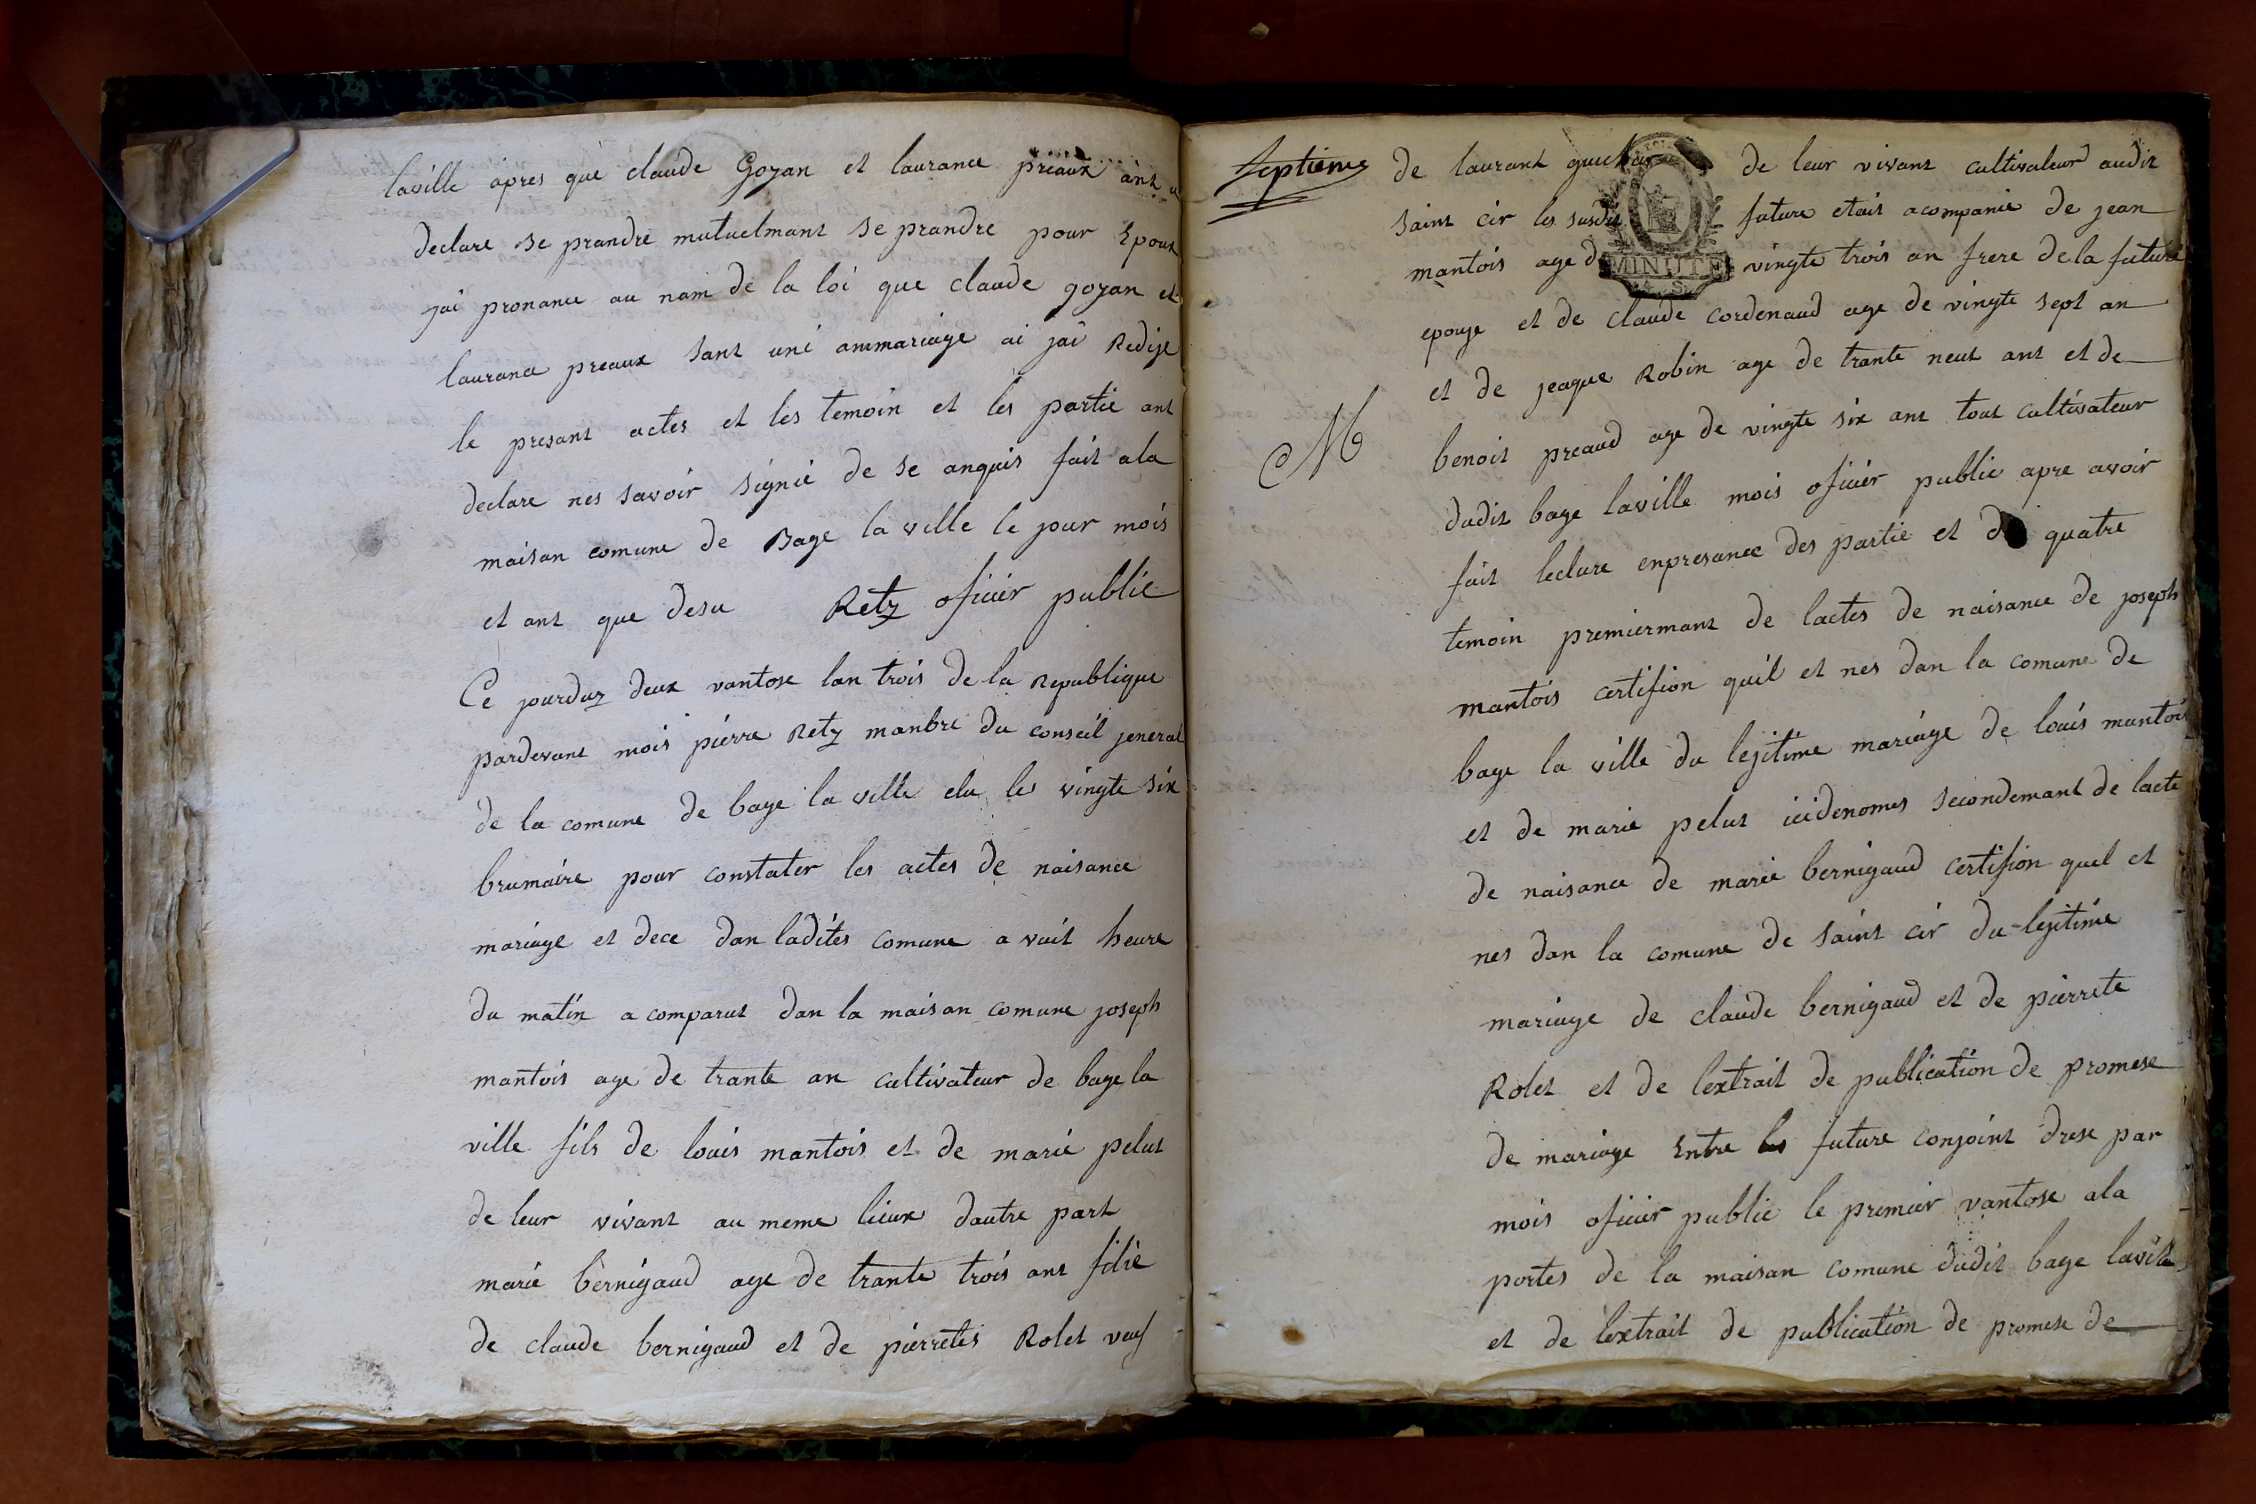 laville apres que claude Goyan et laurance preaux ant
declare se prandre mutuelmant se prandre pour Epoux
jai pronance au nom de la loi que claude goyan et
laurance preaux sant uni anmariage ai jai Redige
le presant actes et les temoin et les partie ant
declare nes savoir signié de se anquis fait ala
maisan comune de Bage la ville le jour mois
et ant que desu Retz oficier public
Ce jourduz deux vantose lan trois de la Republique
pardevant mois pierre Retz manbre du conseil jeneral
de la comune de bage la ville elu les vingte six
brumaire pour constater les actes de naisance
mariage et dece dan ladites comune a vuit heure
du matin a comparut dan la maisan comune joseph
mantois age de trante an cultivateur de bage la
ville fils de louis mantois et de marie pelut
de leur vivant au meme lieux dautre part
marie bernigaud age de trante trois ant filie
de claude bernigaud et de pierretes Rolet veuf
Septieme
de laurant guichar de leur vivant cultivateur audit
saint cir les susdit future etait acompanie de jean
mantois age d vingte trois an frere de la future
MINUTE
epouge et de claude cordenaud age de vingte sept an
et de jeaque Robin age de trante neut ant et de
M
benoit preaud age de vingte six ant tout cultivateur
dudit bage laville mois oficier public apre avoir
fait lecture enpresance des partie et de quatre
temoin premiermant de lactes de naisance de joseph
mantois certifion quil et nes dan la comune de
bage la ville du lejitime mariage de louis mantois
et de marie pelut icidenomes secondemant de lacte
de naisance de marie bernigaud certifion quel et
nes dan la comune de saint cir du lejitime
mariage de claude bernigaud et de pierrete
Rolet et de lextrait de publication de promese
de mariage Entre les future conjoint drese par
mois oficier public le premier vantose ala
portes de la maisan comune dudit bage laville
et de lextrait de publication de promese de